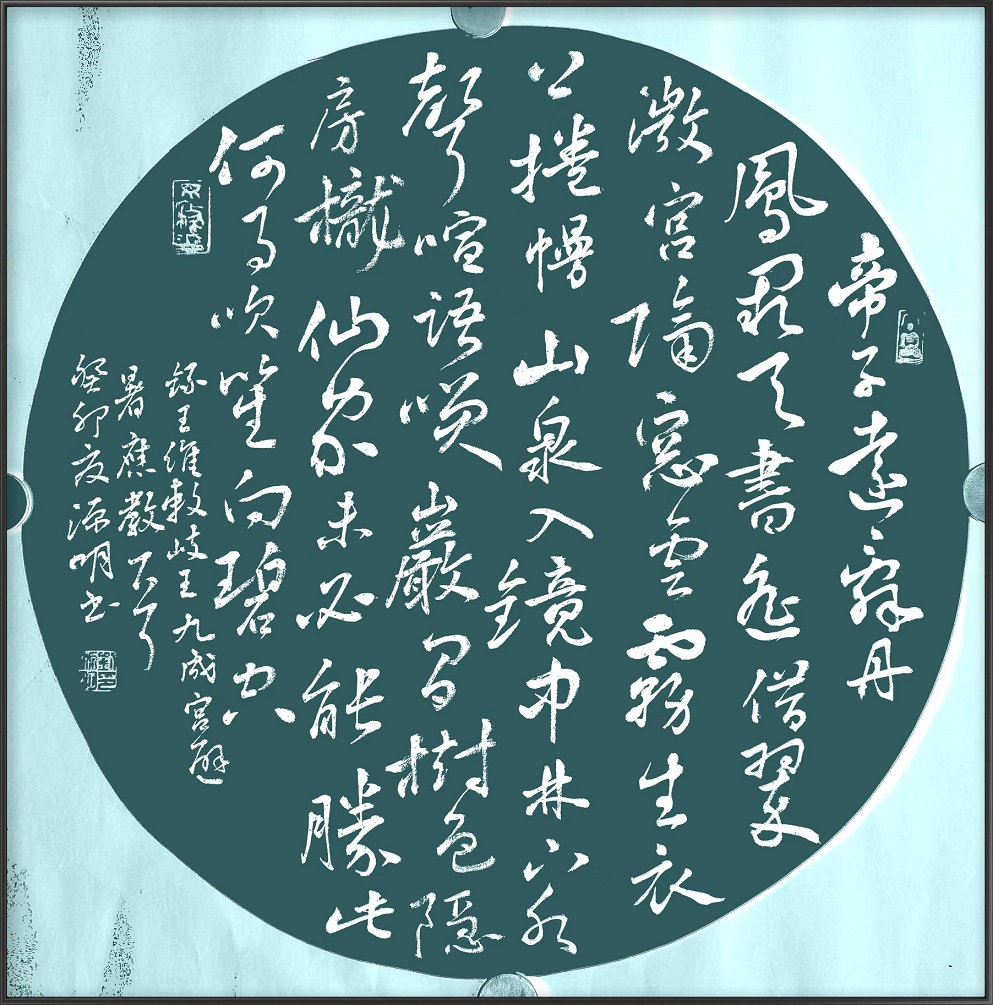 帝子遠辭丹
鳳闕天書遙借翠
微宮隔窗雲霧生衣
上捲幔山泉入鏡中林下水
聲喧語笑巖間樹色隱
房櫳仙家未必能勝此
何事吹笙向碧空
錄王維敕岐王九成宮避
暑應教
癸卯夏源明書